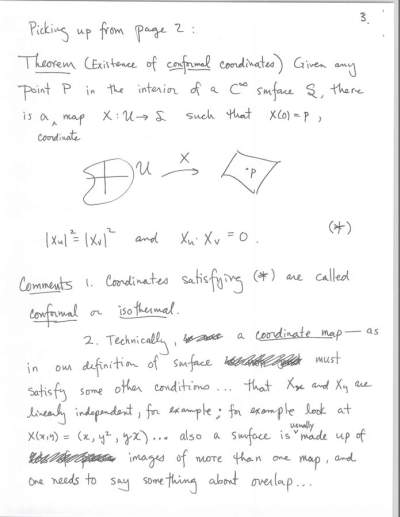 3.
Picking up from page 2 :
Theorem (Existence of conformal coordinates) Given any
point P in the interior of a C∞ surface S, there
is a ‸ map X : U → S such that X(0) = p ,
coordinate
U X · p
|Xu|² = |Xv|² and Xu · Xv = 0 . (*)
Comments 1. Coordinates satisfying (*) are called
conformal or isothermal.
2. Technically, a coordinate map — as
in our definition of surface must
satisfy some other conditions ... that Xx and Xy are
linearly independent, for example ; for example look at
usually
X(x,y) = (x, y², yx) ... also a surface is ‸ made up of
images of more than one map, and
one needs to say something about overlap ...